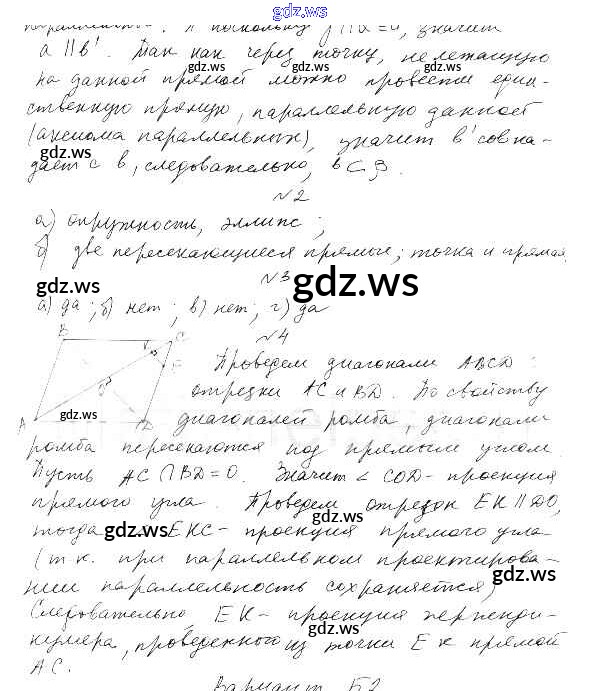 gdz.ws
параллельных. А поскольку β || α = a, значит
a || b'. Так как через точку, не лежащую
на данной прямой можно провести един-
ственную прямую, параллельную данной
(аксиома параллельных), значит b' совпа-
дает с b, следовательно, b ⊂ β.
№2
а) окружность, эллипс;
б) две пересекающиеся прямые; точка и прямая
№3
а) да; б) нет; в) нет; г) да
№4
B C
K E
O
A D
Проведем диагонали ABCD:
отрезки AC и BD. По свойству
диагоналей ромба, диагонали
ромба пересекаются под прямым углом.
Пусть AC ∩ BD = O. Значит ∠ COD - проекция
прямого угла. Проведем отрезок EK || DO,
тогда EKC - проекция прямого угла
(т к. при параллельном проектирова-
нии параллельность сохраняется)
Следовательно, EK - проекция перпенди-
куляра, проведенного из точки E к прямой
AC.
Вариант Б2
gdz.ws
gdz.ws
gdz.ws
gdz.ws
gdz.ws
gdz.ws
gdz.ws
gdz.ws
gdz.ws
gdz.ws
gdz.ws
gdz.ws
gdz.ws